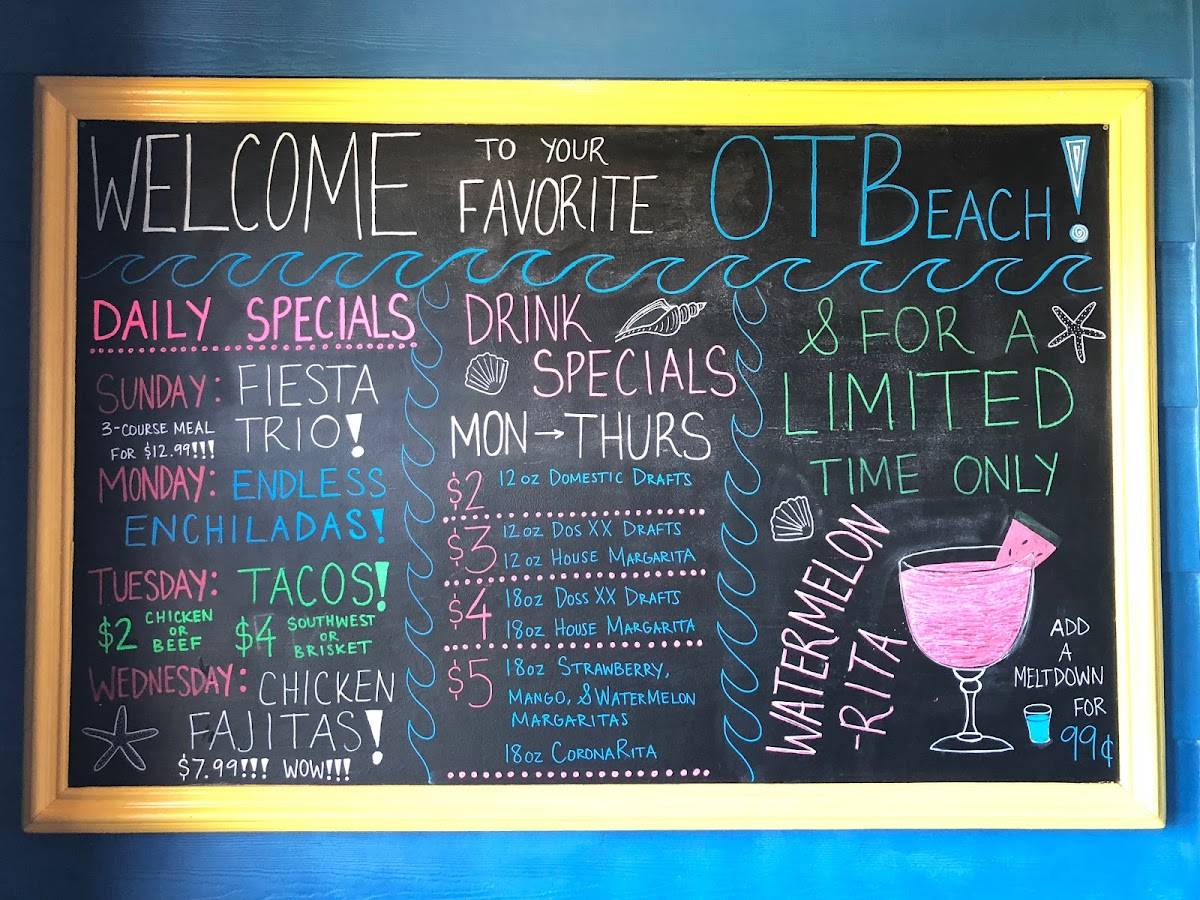 WELCOME TO YOUR FAVORITE OTBEACH!
DAILY SPECIALS
SUNDAY: FIESTA TRIO!
3-COURSE MEAL
FOR $12.99!!!
MONDAY: ENDLESS
ENCHILADAS!
TUESDAY: TACOS!
$2 CHICKEN OR BEEF $4 SOUTHWEST OR BRISKET
WEDNESDAY: CHICKEN
FAJITAS!
$7.99!!! WOW!!!
DRINK
SPECIALS
MON→THURS
$2 12 OZ DOMESTIC DRAFTS
$3 12 OZ DOS XX DRAFTS
12 OZ HOUSE MARGARITA
$4 18OZ DOSS XX DRAFTS
18OZ HOUSE MARGARITA
$5 18OZ STRAWBERRY,
MANGO, & WATERMELON
MARGARITAS
18OZ CORONARITA
& FOR A
LIMITED
TIME ONLY
WATERMELON
-RITA
ADD
A
MELTDOWN
FOR
99¢